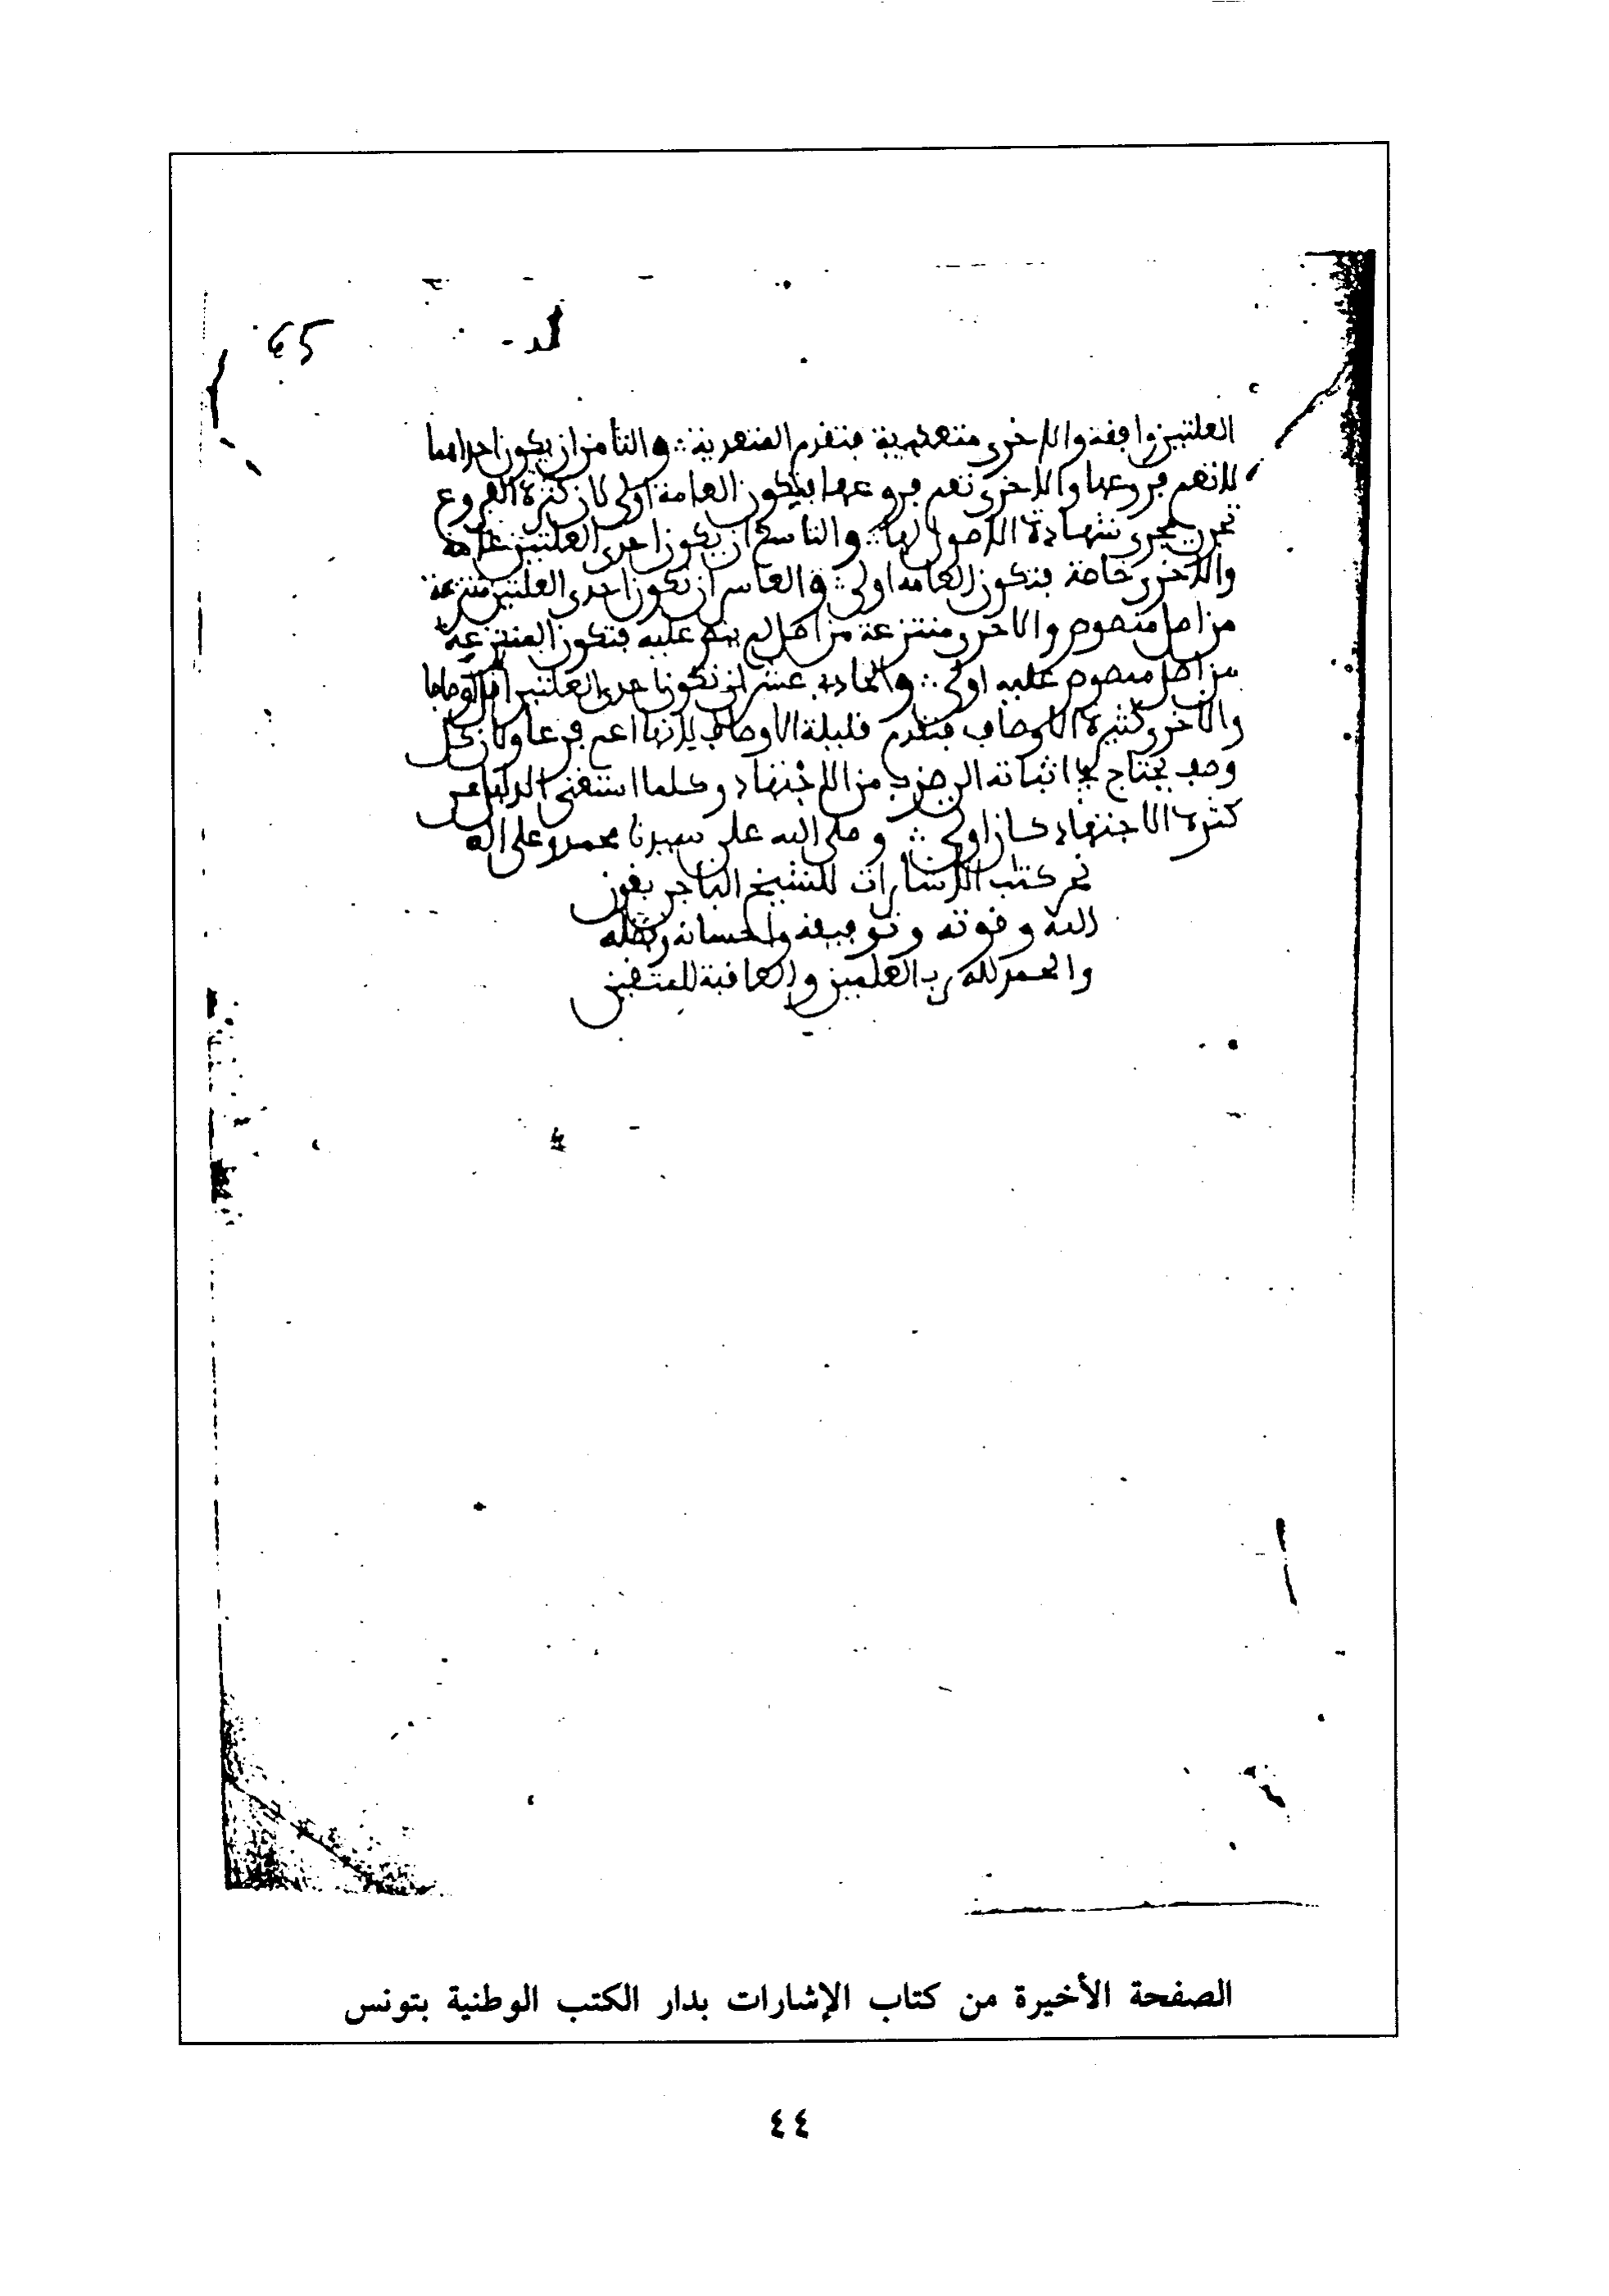 65
العلتين واقفة والاخرى متعدية فتقدم المتعدية ؞ والثامن ان يكون احداهما
لا تعم فروعها والاخرى تعم فروعها فتكون العامة اولى لان كثرة الفروع
تجري مجرى شهادة الاصول لها ؞ والتاسع ان يكون احدى العلتين عامة
والاخرى خاصة فتكون العامة اولى ؞ والعاشر ان تكون احدى العلتين منتزعة
من اصل منصوص والاخرى منتزعة من اصل لم ينص عليه فتكون المنتزعة
من اصل منصوص عليه اولى ؞ والحادي عشر ان تكون احدى العلتين اقل اوصافا
والاخرى كثيرة الاوصاف فتقدم قليلة الاوصاف لانها اعم فروعا ولان كل
وصف يحتاج في اثباته الى ضرب من الاجتهاد وكلما استغنى الدليل عن
كثرة الاجتهاد كان اولى ؞ وصلى الله على سيدنا محمد وعلى اله
تم كتاب الاشارات للشيخ الباجي بعون
الله وقوته وتوفيقه واحسانه وفضله
والحمد لله رب العلمين والعاقبة للمتقين
الصفحة الأخيرة من كتاب الإشارات بدار الكتب الوطنية بتونس
٤٤